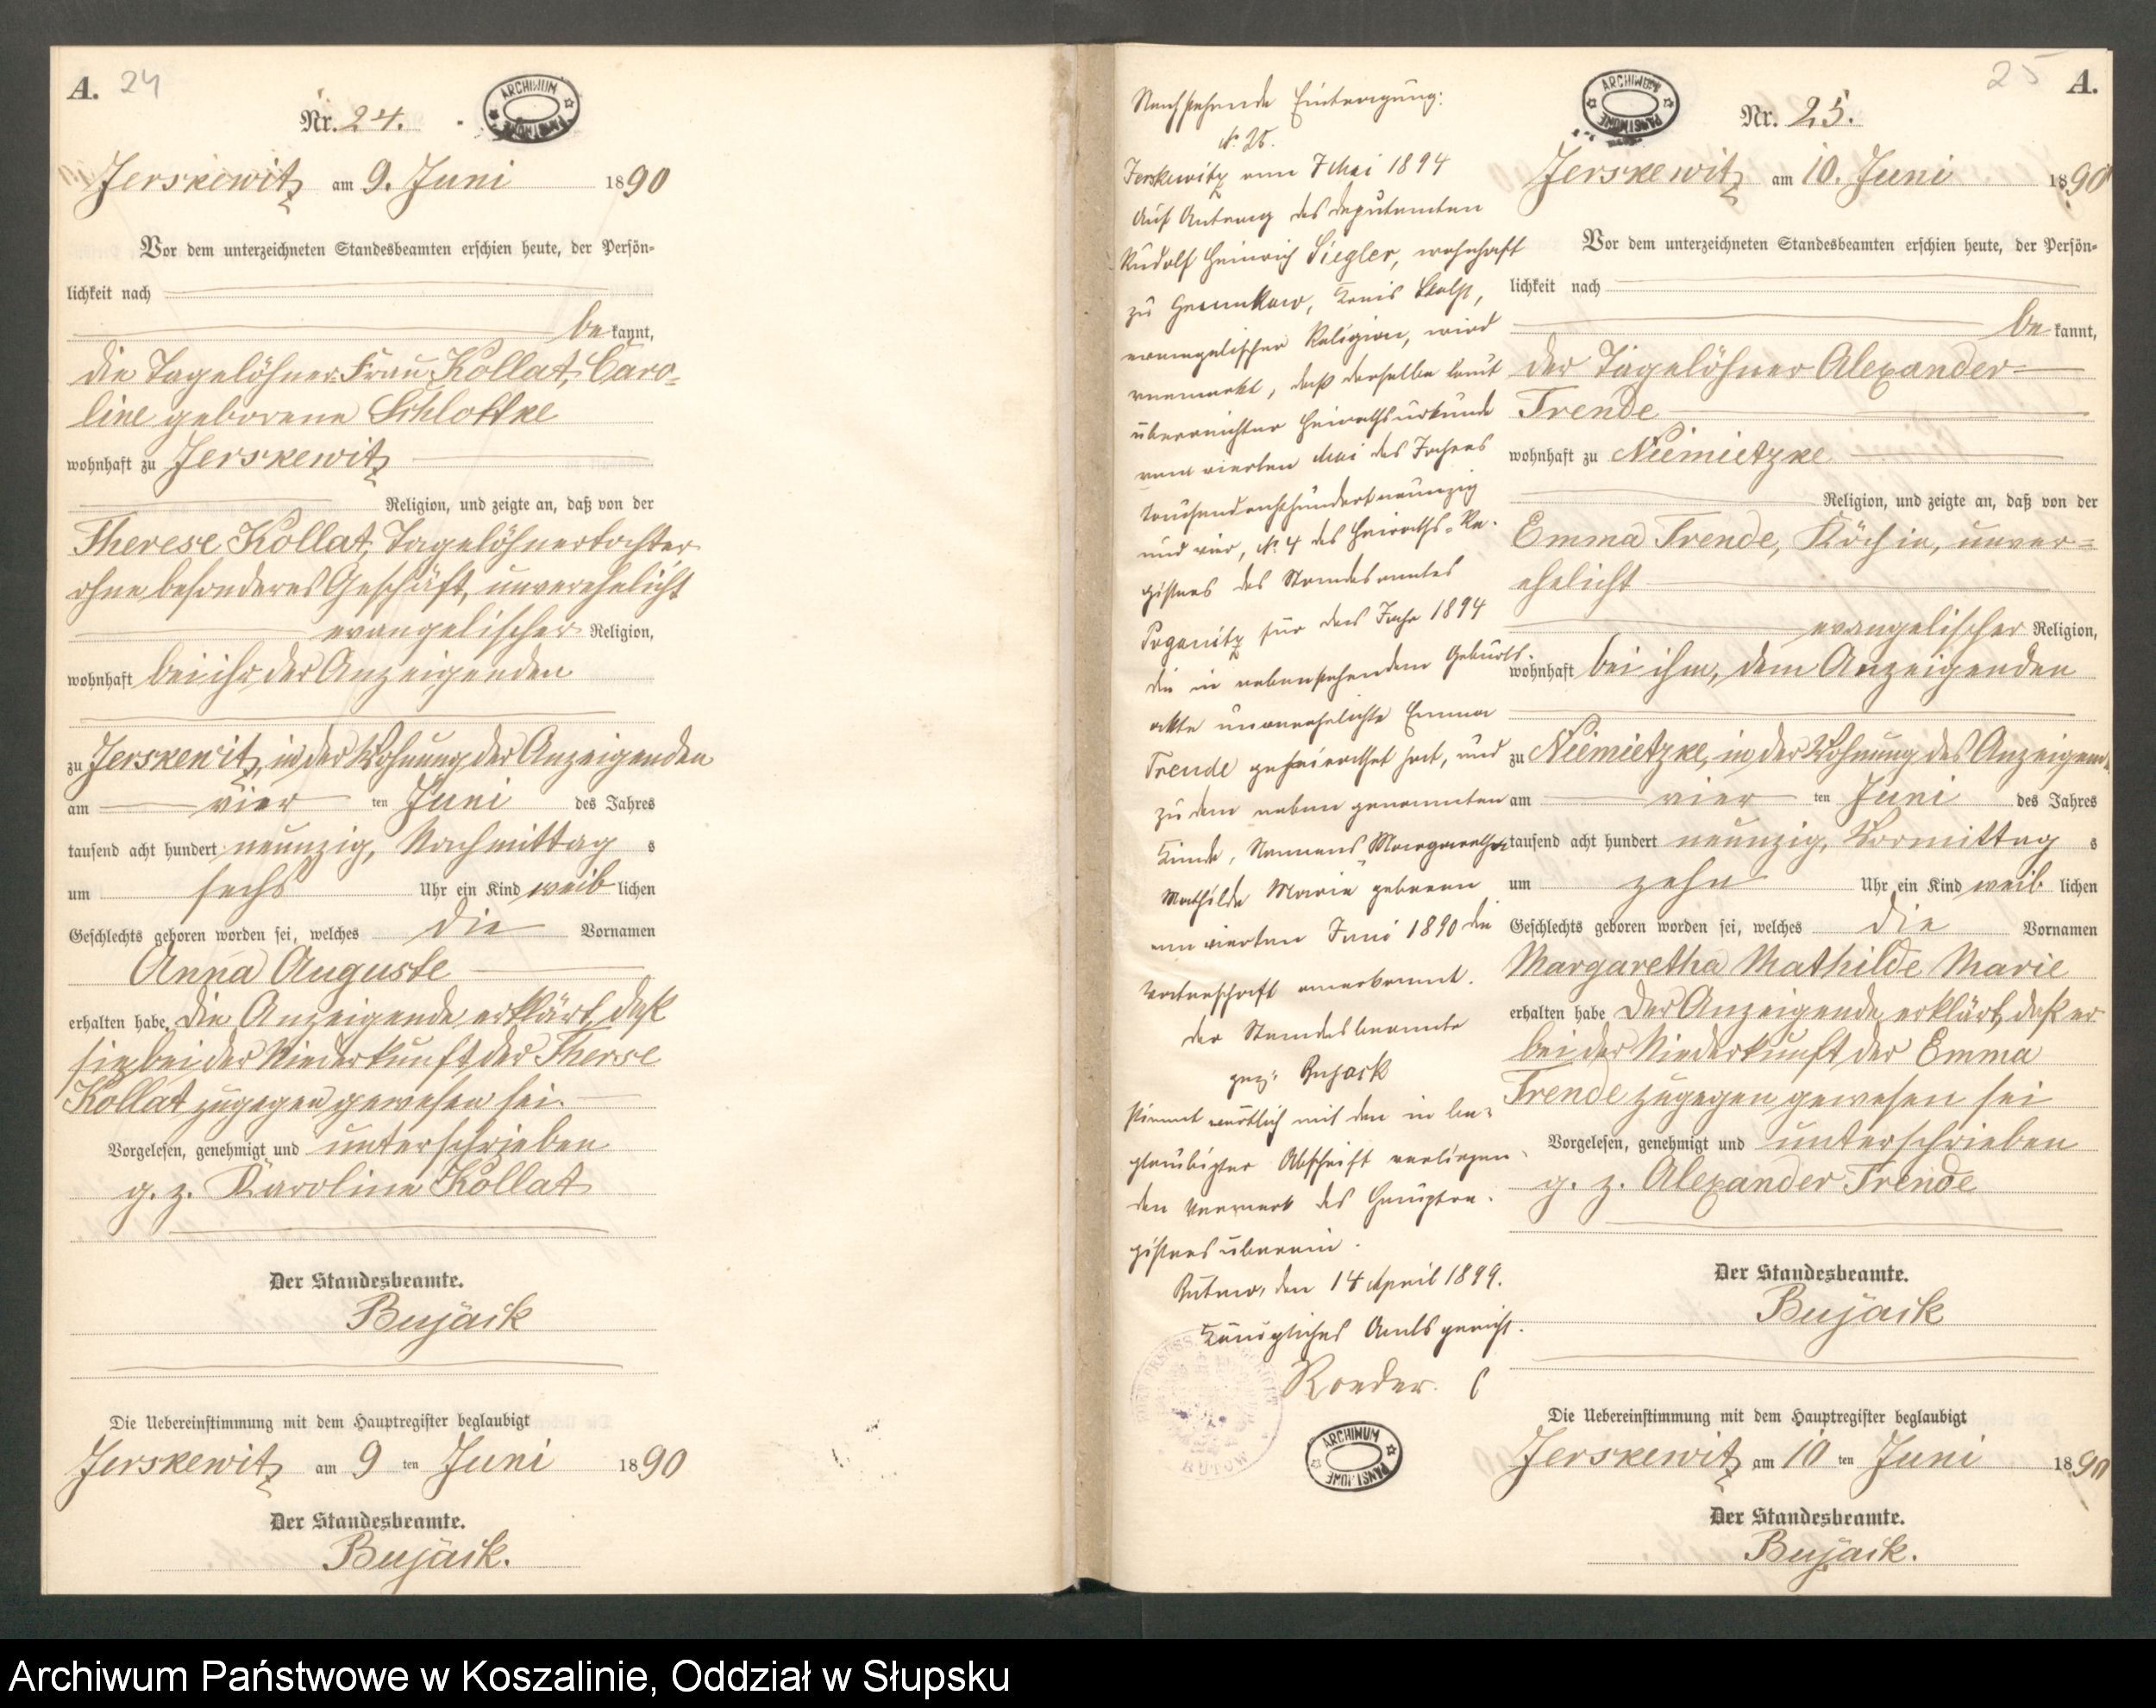 A. 24
Nr. 24.
ARCHIWUM PAŃSTWOWE
Jerskewitz am 9. Juni 1890
Vor dem unterzeichneten Standesbeamten erschien heute, der Persön-
lichkeit nach
be kannt,
die Tagelöhner-Frau Kollat, Caro-
line geborene Schlottke
wohnhaft zu Jerskewitz
Religion, und zeigte an, daß von der
Therese Kollat, Tagelöhnertochter
ohne besonderes Geschäft, unverehelicht
evangelischer Religion,
wohnhaft bei ihr, der Anzeigenden
zu Jerskewitz, in der Wohnung der Anzeigenden
am vier ten Juni des Jahres
tausend acht hundert neunzig, Nachmittag s
um sechs Uhr ein Kind weib lichen
Geschlechts geboren worden sei, welches die Vornamen
Anna Auguste
erhalten habe. Die Anzeigende erklärt, daß
sie bei der Niederkunft der Therese
Kollat zugegen gewesen sei.
Vorgelesen, genehmigt und unterschrieben
g. z. Karoline Kollat
Der Standesbeamte.
Bujack
Die Uebereinstimmung mit dem Hauptregister beglaubigt
Jerskewitz am 9 ten Juni 1890
Der Standesbeamte.
Bujack.
Nachstehende Eintragung:
N. 25.
Jerskewitz am 7 Mai 1894
Auf Antrag des Deputanten
Rudolf Heinrich Siegler, wohnhaft
zu Grumkow, Kreis Stolp,
evangelischer Religion, wird
vermerkt, daß derselbe laut
überreichter Heirathsurkunde
vom vierten Mai des Jahres
tausendachthundertneunzig
und vier, N. 4 des Heiraths-Re-
gisters des Standesamtes
Poganitz für das Jahr 1894
die in nebenstehendem Geburts-
akte unverehelichte Emma
Trende geheirathet hat, und
zu dem neben genannten
Kinde, Namens Margaretha
Mathilde Marie geboren
am vierten Juni 1890 die
Vaterschaft anerkannt.
der Standesbeamte
gez. Bujack
stimmt wörtlich mit den in be-
glaubigter Abschrift vorliegen-
den Vermerk des Hauptre-
gisters überein.
Bütow, den 14 April 1899.
Königliches Amtsgericht.
Roeder.
ARCHIWUM PAŃSTWOWE
25 A.
ARCHIWUM PAŃSTWOWE
Nr. 25.
Jerskewitz am 10. Juni 1890
Vor dem unterzeichneten Standesbeamten erschien heute, der Persön-
lichkeit nach
be kannt,
der Tagelöhner Alexander
Trende
wohnhaft zu Niemietzke
Religion, und zeigte an, daß von der
Emma Trende, Köchin, unver-
ehelicht
evangelischer Religion,
wohnhaft bei ihm, dem Anzeigenden
zu Niemietzke, in der Wohnung des Anzeigend.
am vier ten Juni des Jahres
tausend acht hundert neunzig, Vormittag s
um zehn Uhr ein Kind weib lichen
Geschlechts geboren worden sei, welches die Vornamen
Margaretha Mathilde Marie
erhalten habe Der Anzeigende erklärt, daß er
bei der Niederkunft der Emma
Trende zugegen gewesen sei
Vorgelesen, genehmigt und unterschrieben
g. z. Alexander Trende
Der Standesbeamte.
Bujack
Die Uebereinstimmung mit dem Hauptregister beglaubigt
Jerskewitz am 10 ten Juni 1890
Der Standesbeamte.
Bujack.
Archiwum Państwowe w Koszalinie, Oddział w Słupsku